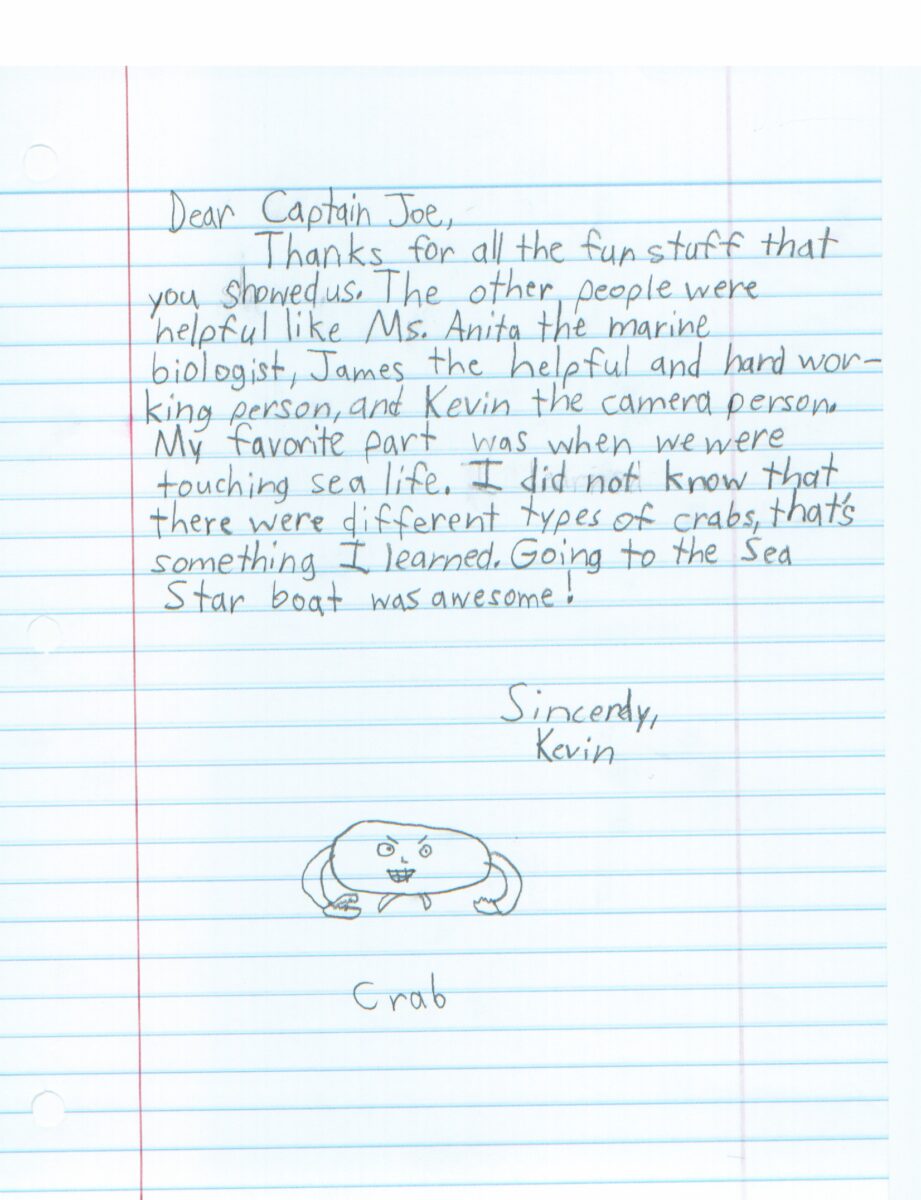 Dear Captain Joe,
Thanks for all the fun stuff that
you showed us. The other people were
helpful like Ms. Anita the marine
biologist, James the helpful and hard wor-
king person, and Kevin the camera person.
My favorite part was when we were
touching sea life. I did not know that
there were different types of crabs, that's
something I learned. Going to the Sea
Star boat was awesome!
Sincerely,
Kevin
Crab